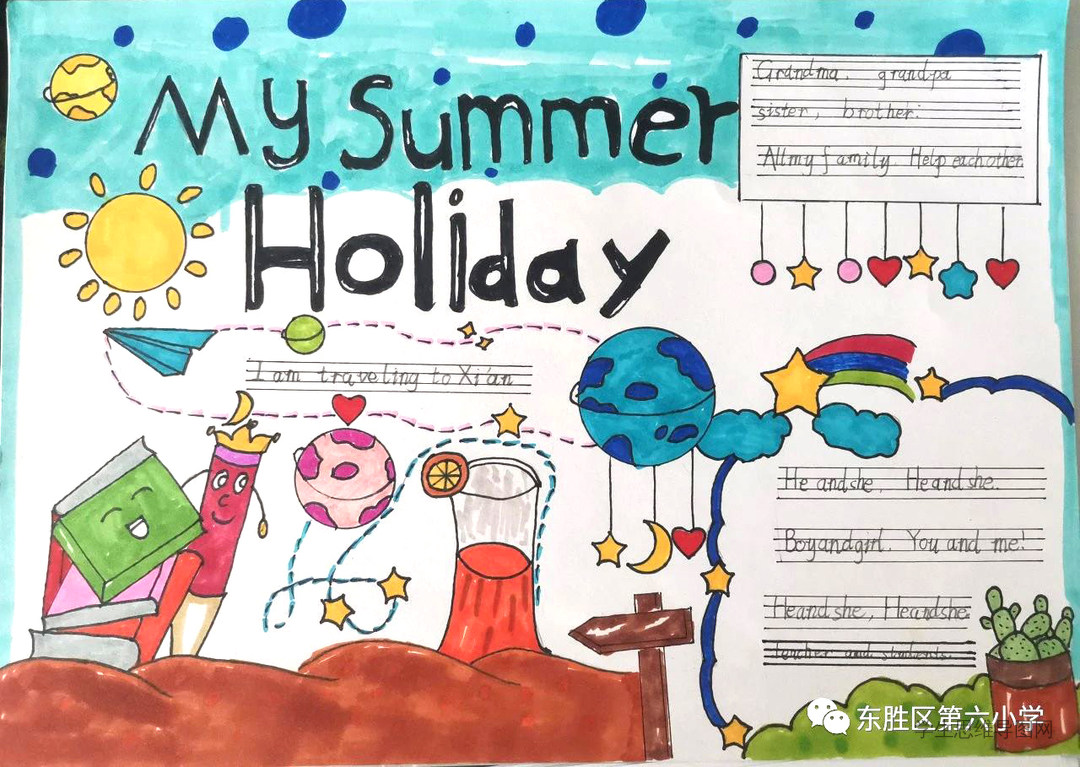 My Summer
Holiday
Grandma. grandpa
sister, brother.
All my family. Help each other.
I am traveling to Xi'an
He and she. He and she.
Boy and girl. You and me!
He and she, He and she
teacher and students.
东胜区第六小学
学生思维导图网